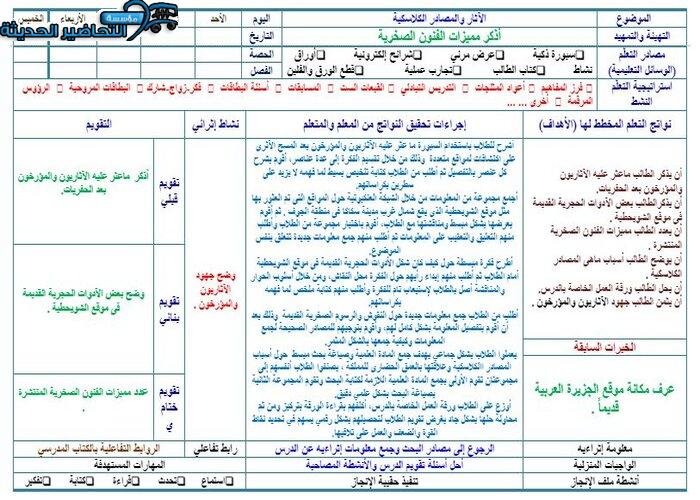 مؤسسة
التحاضير الحديثة
الموضوع الآثار والمصادر الكلاسكية اليوم الأحد الأربعاء الخميس
التهيئة والتمهيد أذكر مميزات الفنون الصخرية التاريخ
مصادر التعلم سبورة ذكية عرض مرئي شرائح إلكترونية أوراق الحصة
(الوسائل التعليمية) نشاط كتاب الطالب تجارب عملية قطع الورق والفلين الفصل
استراتيجية التعلم فرز المفاهيم أعواد المثلجات التدريس التبادلي القبعات الست المسابقات أسئلة البطاقات فكر-زواج-شارك البطاقات المروحية الرؤوس
النشط المرقمة أخرى ... ...
نواتج التعلم المخطط لها (الأهداف) إجراءات تحقيق النواتج من المعلم والمتعلم نشاط إثرائي التقويم
أن يذكر الطالب ماعثر عليه الآثاريون
والمؤرخون بعد الحفريات.
أن يذكرالطالب بعض الأدوات الحجرية القديمة
في موقع الشويحطية.
أن يعدد الطالب مميزات الفنون الصخرية
المنتشرة .
أن يوضح الطالب أسباب ماهى المصادر
الكلاسكية .
أن يحل الطالب ورقة العمل الخاصة بالدرس.
أن يثمن الطالب جهود الآثاريون والمؤرخون .
الخبرات السابقة
عرف مكانة موقع الجزيرة العربية
قديماً .
اشرح للطلاب باستخدام السبورة ما عثر عليه الآثاريون والمؤرخون بعد المسح الأثرى
على اكتشافات لمواقع متعددة وذلك من خلال تقسيم الفكرة إلى عدة عناصر، أقوم بشرح
كل عنصر بالتفصيل ثم أطلب من الطلاب كتابة تلخيص بسيط لما فهمه لا يزيد على
سطرين بكراساتهم.
أجمع مجموعة من المعلومات من خلال الشبكة العنكبوتية حول المواقع التى تم العثور بها
مثل موقع الشويحطية الذي يقع شمال غرب مدينة سكاكا فى منطقة الجوف . ثم أقوم
بعرضها بشكل مبسط ومناقشتها مع الطلاب، أقوم باختيار مجموعة من الطلاب وأطلب
منهم التعليق والتعقيب على المعلومات ثم أطلب منهم جمع معلومات جديدة تتعلق بنفس
الموضوع.
أطرح فكرة مبسطة حول كيف كان شكل الأدوات الحجرية القديمة في موقع الشويحطية
أمام الطلاب ثم أطلب منهم إبداء رأيهم حول الفكرة محل النقاش، ومن خلال أسلوب الحوار
والمناقشة أصل بالطلاب لإستيعاب تام للفكرة وأطلب منهم كتابة ملخص لما فهمه
بكراساتهم.
أطلب من الطلاب جمع معلومات جديدة حول النقوش والرسوم الصخرية القديمة وذلك بعد
أن أقوم بتفصيل المعلومة بشكل كامل لهم، وأقوم بتوجيههم للمصادر الصحيحة لجمع
المعلومات وكيفية جمعها بالشكل المثمر.
يعملوا الطلاب بشكل جماعي بهدف جمع المادة العلمية وصياغة بحث مبسط حول أسباب
المصادر الكلاسكية وعلاقتها بالعمق الحضارى للمملكة ، يصنفوا الطلاب أنفسهم إلى
مجموعتان تقوم الأولى بجمع المادة العلمية اللازمة لكتابة البحث وتقوم المجموعة الثانية
بصياغة البحث بشكل علمي دقيق.
أوزع على الطلاب ورقة العمل الخاصة بالدرس، أكلفهم بقراءة الورقة بتركيز ومن ثم
محاولة حلها بشكل جاد بغرض تقويم الطلاب لتحصيلهم بشكل رسمي يسهم في تحديد نقاط
القوة والضعف والعمل على تلافيها.
وضح جهود
الآثاريون
والمؤرخون .
تقويم
قبلي
أذكر ماعثر عليه الآثاريون والمؤرخون
بعد الحفريات.
تقويم
بنائي
وضح بعض الأدوات الحجرية القديمة
في موقع الشويحطية.
تقويم
ختام
ي
عدد مميزات الفنون الصخرية المنتشرة
.
معلومة إثراءيه الرجوع إلى مصادر البحث وجمع معلومات إثراءيه عن الدرس رابط تفاعلي الروابط التفاعلية بالكتاب المدرسي
الواجبات المنزلية أحل أسئلة تقويم الدرس والأنشطة المصاحبة المهارات المستهدفة
أنشطة ملف الإنجاز تنفيذ حقيبة الإنجاز استماع تحدث قراءة كتابة تفكير